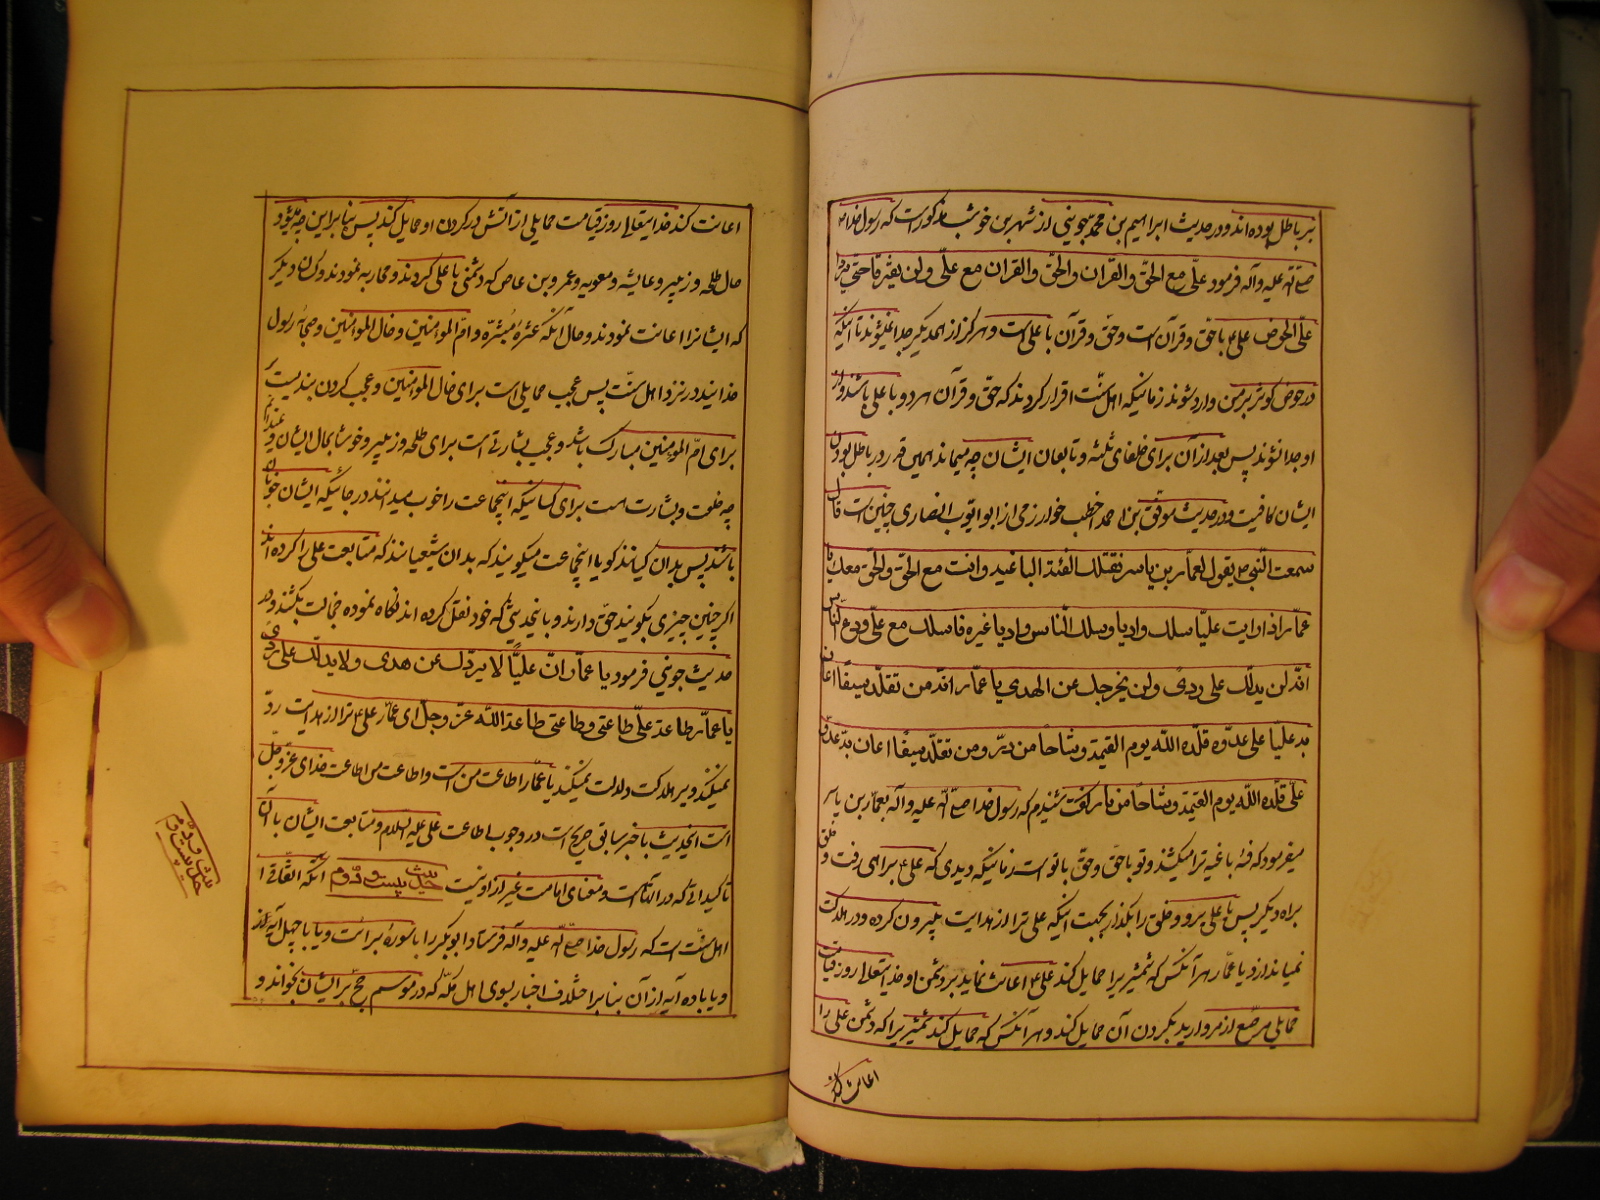 بر باطل بوده اند و در حدیث ابراهیم بن محمد جوینی از شهر بن خوشب مذکور است که رسول خدا
صلی الله علیه و آله فرمود علّی مع الحقّ والقران والحقّ والقران مع علّی ولن یفترقا حتی یردا
علّی الحوض علی ع با حق و قرآن است و حق و قرآن با علی است و هرگز از همدیگر جدا نمیشوند تا اینکه
در حوض کوثر بر من وارد شوند زمانیکه اهل سنّت اقرار کردند که حق و قرآن هر دو با علی باشند و از
او جدا نشوند پس بعد از آن برای خلفای ثلثه و تابعان ایشان چه میماند همین قدر در باطل بودن
ایشان کافیست و در حدیث موفق بن احمد اخطب خوارزمی از ابو ایوب انصاری چنین است قال
سمعت النّبی ص یقول لعمّار بن یاسر تقتلک الفئة الباغیه وانت مع الحقّ والحقّ معک یا
عمّار اذا رایت علیّا سلک وادیا وسلک النّاس وادیا غیره فاسلک مع علّی ودع النّاس
انّه لن یدلّک علی ردیً ولن یخرجک عن الهدی یا عمّار انّه من تقلّد سیفًا اعان
به علیّا علی عدّوه قلّده الله یوم القیمة وشاحًا من درّ ومن تقلّد سیفًا اعان به عدوّ
علّی قلّده الله یوم القیمة وشاحًا من نار گفت شنیدم که رسول خدا صلی الله علیه و آله بعمّار بن یاسر
میفرمود که فئه باغیه ترا میکشند و تو با حق و حق با تو است زمانیکه دیدی که علی ع براهی رفت و خلق
براه دیگر پس با علی برو و خلق را بگذار بجهت اینکه علی ترا از هدایت بیرون نکرده و در هلاکت
نمیاندازد یا عمّار هر آنکس که شمشیر برا حمایل کند علی ع اعانت نماید بر دشمن او خدایتعالی روز قیامت
حمایلی مرصّع از مروارید بگردن آن حمایل کند و هر آنکس که حمایل کند شمشیر برا که دشمن علی را
اعانت کند
اعانت کند خدایتعالی روز قیامت حمایلی از آتش در گردن او حمایل کند پس بنا براین چه میشود
حال طلحه و زبیر و عایشه و معویه و عمرو بن عاص که دشمنی با علی کردند و محاربه نمودند و کسان دیگر
که ایشانرا اعانت نمودند و حال آنکه عشرهٔ مبشّره و امّ المؤمنین و خال المؤمنین و صحابهٔ رسول
خدا بیند در نزد اهل سنّت پس عجب حمایلی است برای خال المؤمنین و عجب گردن بندیست
برای امّ المؤمنین مبارک باشد و عجب بشارتی است برای طلحه و زبیر و خوشا بحال ایشان و
چه خلعت و بشارت است برای کسانیکه اینجماعت را خوب میدانند در جائیکه ایشان خوبان
باشند پس بدان کیانند گویا اینجماعت میگویند که بدان شیعیانند که متابعت علی را کرده اند
اگر چنین چیزی بگویند حق دارند و باینحدیثی که خود نقل کرده اند نگاه نموده خجالت بکشند و در
حدیث جوینی فرمود یا عمّار انّ علیًّا لا یردّک عن هدی ولا یدلّک علی ردی
یا عمّار طاعة علّی طاعتی وطاعتی طاعة الله عزّ وجلّ ای عمّار علی ع ترا از هدایت ردّ
نمیکند و بر هلاکت دلالت نمیکند یا عمّار اطاعت من است و اطاعت من اطاعت خدای عزّ و جلّ
است اینحدیث با خبر سابق صریح است در وجوب اطاعت علی علیه السّلام و متابعت ایشان با آن
تاکیداتی که در آنها است و معنای امامت غیر از او نیست حدیث بیست و دوّم آنکه اتّفاقی
اهل سنّت است که رسول خدا صلی الله علیه و آله فرستاد ابو بکر را با سورهٔ برائت و یا با چهل آیه از
و یا با ده آیه از آن بنا بر اختلاف اخبار بسوی اهل مکّه که در موسم حج بر ایشان بخواند و
حدیث بیست و دوّم